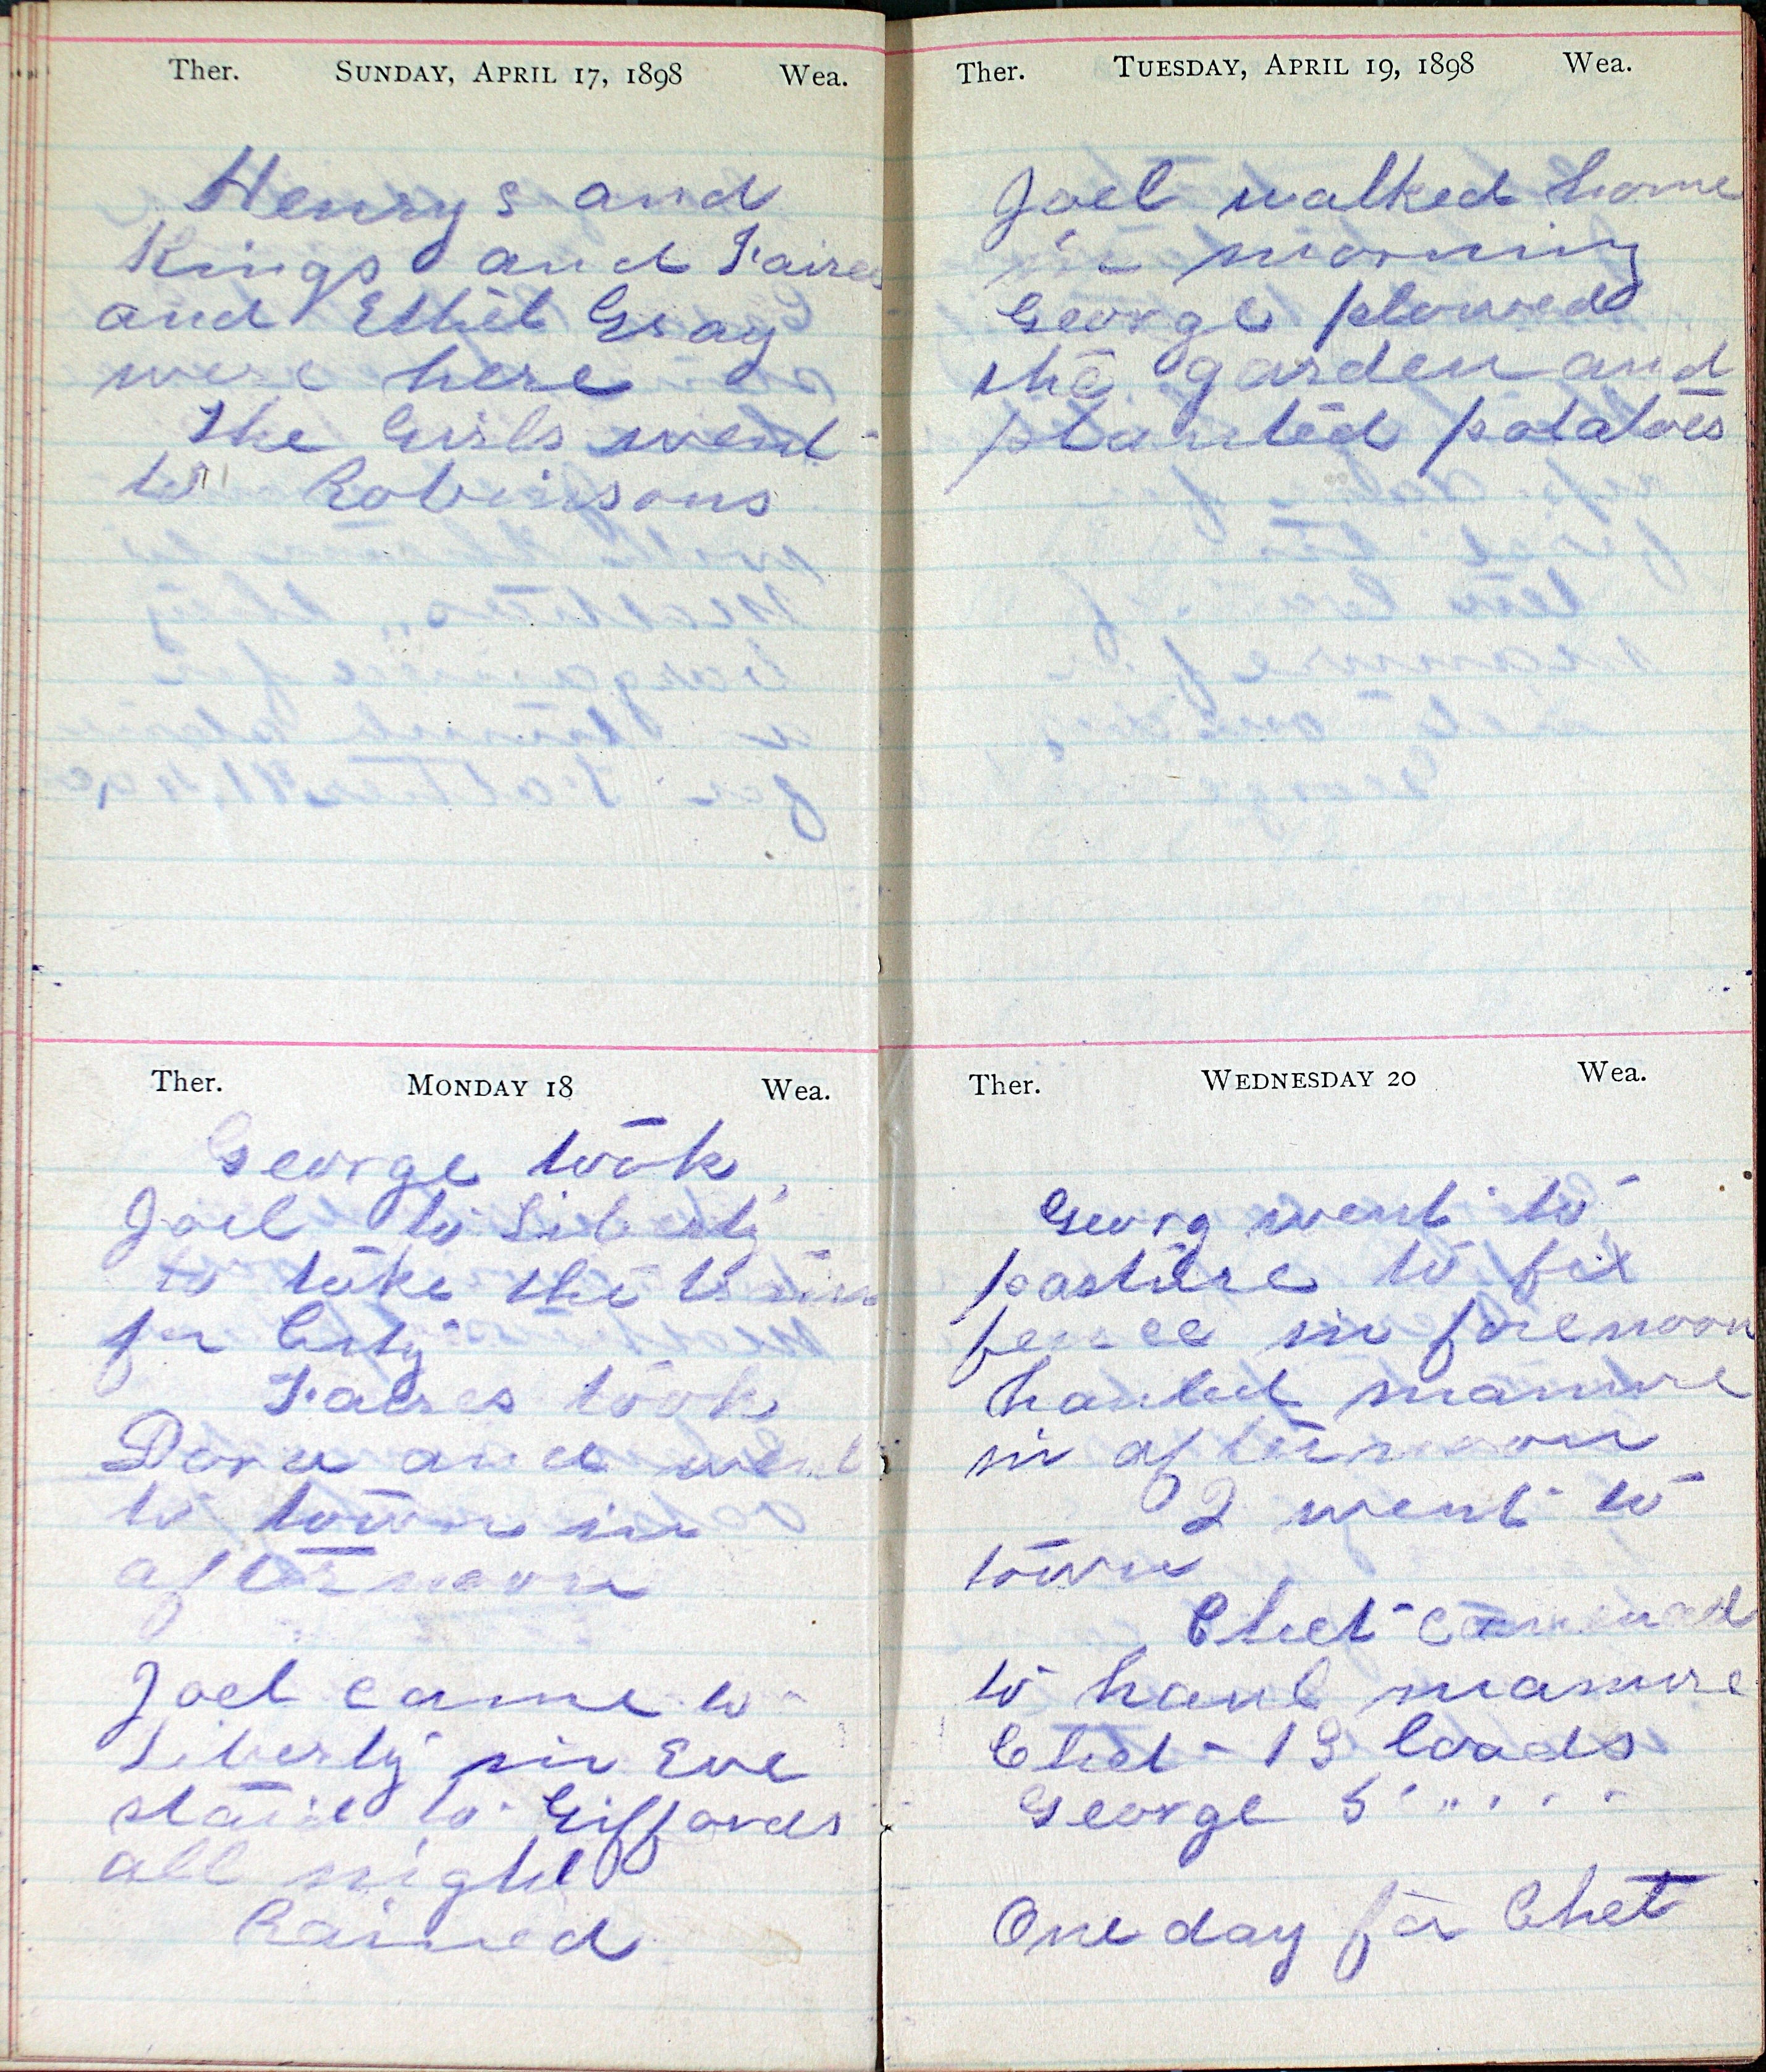 Ther. SUNDAY, APRIL 17, 1898 Wea.
Henrys and
Kings and Faires
and Ethel Gray
were here
The Girls went
to Robinsons
Ther. MONDAY 18 Wea.
George took
Joel to Liberty
to take the train
for City
Faires took
Dora and went
to town in
afternoon
Joel came to
Liberty in Eve
staid to Giffords
all night
Rained
Ther. TUESDAY, APRIL 19, 1898 Wea.
Joel walked home
in morning
George plowed
the garden and
planted potatoes
Ther. WEDNESDAY 20 Wea.
Georg went to
pasture to fix
fence in forenoon
hauled manure
in afternoon
I went to
town
Chet
to haul manure
Chet - 13 loads
George 5 " " " "
One day for Chet